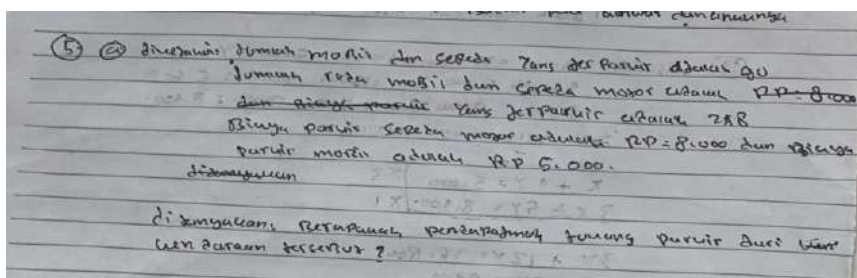 ⑤ ⓐ diketahui: Jumlah mobil dan sepeda yang terparkir adalah 90
Jumlah roda mobil dan sepeda motor adalah RP=8.000
dan Biaya parkir yang terparkir adalah 248
Biaya parkir sepeda motor adalah RP=8.000 dan Biaya
parkir mobil adalah RP 5.000.
ditanyakan
ditanyakan: Berapakah pendapatan parkir dari
kendaraan tersebut ?